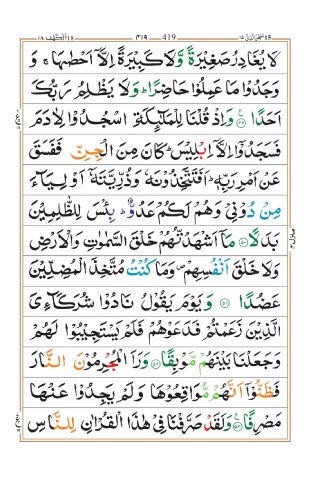 لَا يُغَادِرُ صَغِيْرَةً وَّلَا كَبِيْرَةً اِلَّاۤ اَحْصٰىهَا ۚ وَ
وَجَدُوْا مَا عَمِلُوْا حَاضِرًا ؕ وَلَا يَظْلِمُ رَبُّكَ
اَحَدًا ۟﴿۴۹﴾ وَاِذْ قُلْنَا لِلْمَلٰٓئِكَةِ اسْجُدُوْا لِاٰدَمَ
فَسَجَدُوْۤا اِلَّاۤ اِبْلِيْسَ ؕ كَانَ مِنَ الْجِنِّ فَفَسَقَ
عَنْ اَمْرِ رَبِّهٖ ؕ اَفَتَتَّخِذُوْنَهٗ وَذُرِّيَّتَهٗۤ اَوْلِيَآءَ
مِنْ دُوْنِيْ وَهُمْ لَكُمْ عَدُوٌّ ؕ بِئْسَ لِلظّٰلِمِيْنَ
بَدَلًا ﴿۵۰﴾ مَاۤ اَشْهَدْتُّهُمْ خَلْقَ السَّمٰوٰتِ وَالْاَرْضِ
وَلَا خَلْقَ اَنْفُسِهِمْ ۪ وَمَا كُنْتُ مُتَّخِذَ الْمُضِلِّيْنَ
عَضُدًا ﴿۵۱﴾ وَيَوْمَ يَقُوْلُ نَادُوْا شُرَكَآءِيَ
الَّذِيْنَ زَعَمْتُمْ فَدَعَوْهُمْ فَلَمْ يَسْتَجِيْبُوْا لَهُمْ
وَجَعَلْنَا بَيْنَهُمْ مَّوْبِقًا ﴿۵۲﴾ وَرَاَ الْمُجْرِمُوْنَ النَّارَ
فَظَنُّوْۤا اَنَّهُمْ مُّوَاقِعُوْهَا وَلَمْ يَجِدُوْا عَنْهَا
مَصْرِفًا ﴿۵۳﴾ وَلَقَدْ صَرَّفْنَا فِيْ هٰذَا الْقُرْاٰنِ لِلنَّاسِ